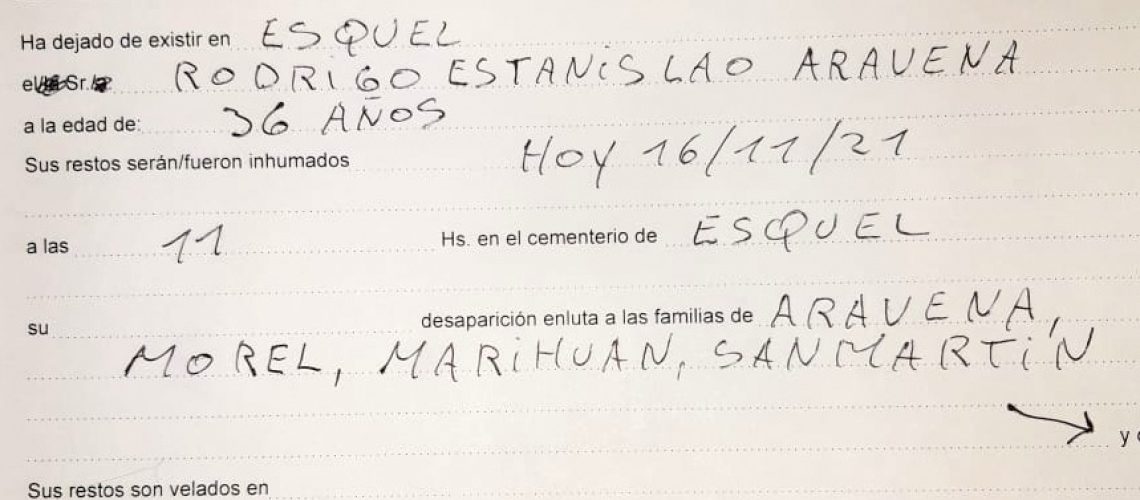 Ha dejado de existir en ESQUEL
el Sr. RODRIGO ESTANISLAO ARAVENA
a la edad de: 36 AÑOS
Sus restos serán/fueron inhumados HOY 16/11/21
a las 11 Hs. en el cementerio de ESQUEL
su desaparición enluta a las familias de ARAVENA,
MOREL, MARIHUAN, SANMARTIN
y
Sus restos son velados en